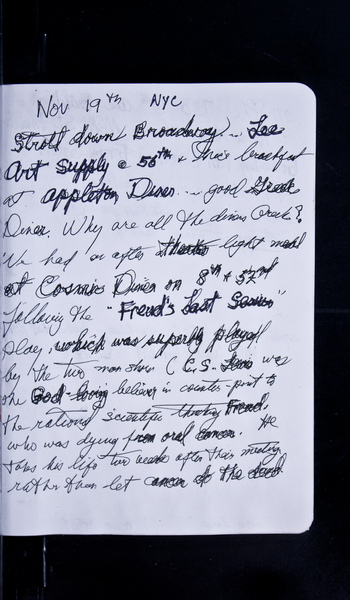 Nov 19th NYC
Stroll down Broadway... Lee
Art Supply @ 56th + this breakfast
at Appleton Diner... good Greek
Diner. Why are all the diners Greek?
We had an after theatre light meal
at Cosmic Diner on 8th + 52nd
following the "Freud's Last Session"
play, which was superbly played
by the two man show (C.S. Lewis was
the God-loving believer in counter-point to
the rational scientific thinking Freud.
who was dying from oral cancer. He
takes his life two weeks after their meeting
rather than let cancer do the deed.